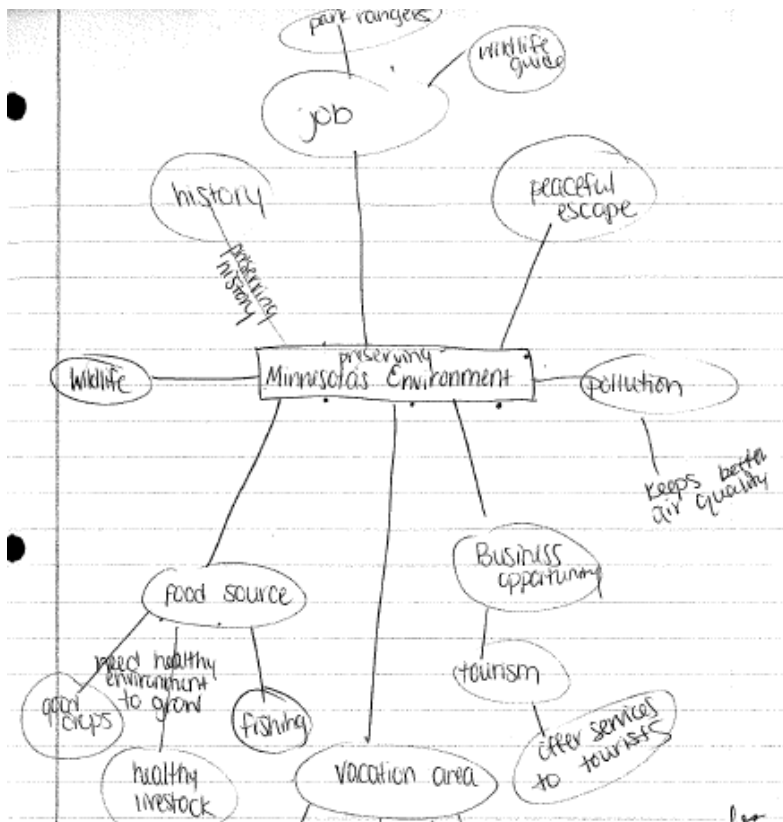 park rangers
wildlife
guide
job
history
peaceful
escape
preserving
history
preserving
Minnisota's Environment
wildlife
pollution
keeps better
air quality
Business
opportunity
food source
tourism
need healthy
environment
to grow
good
crops
fishing
offer services
to tourists
healthy
livestock
vacation area